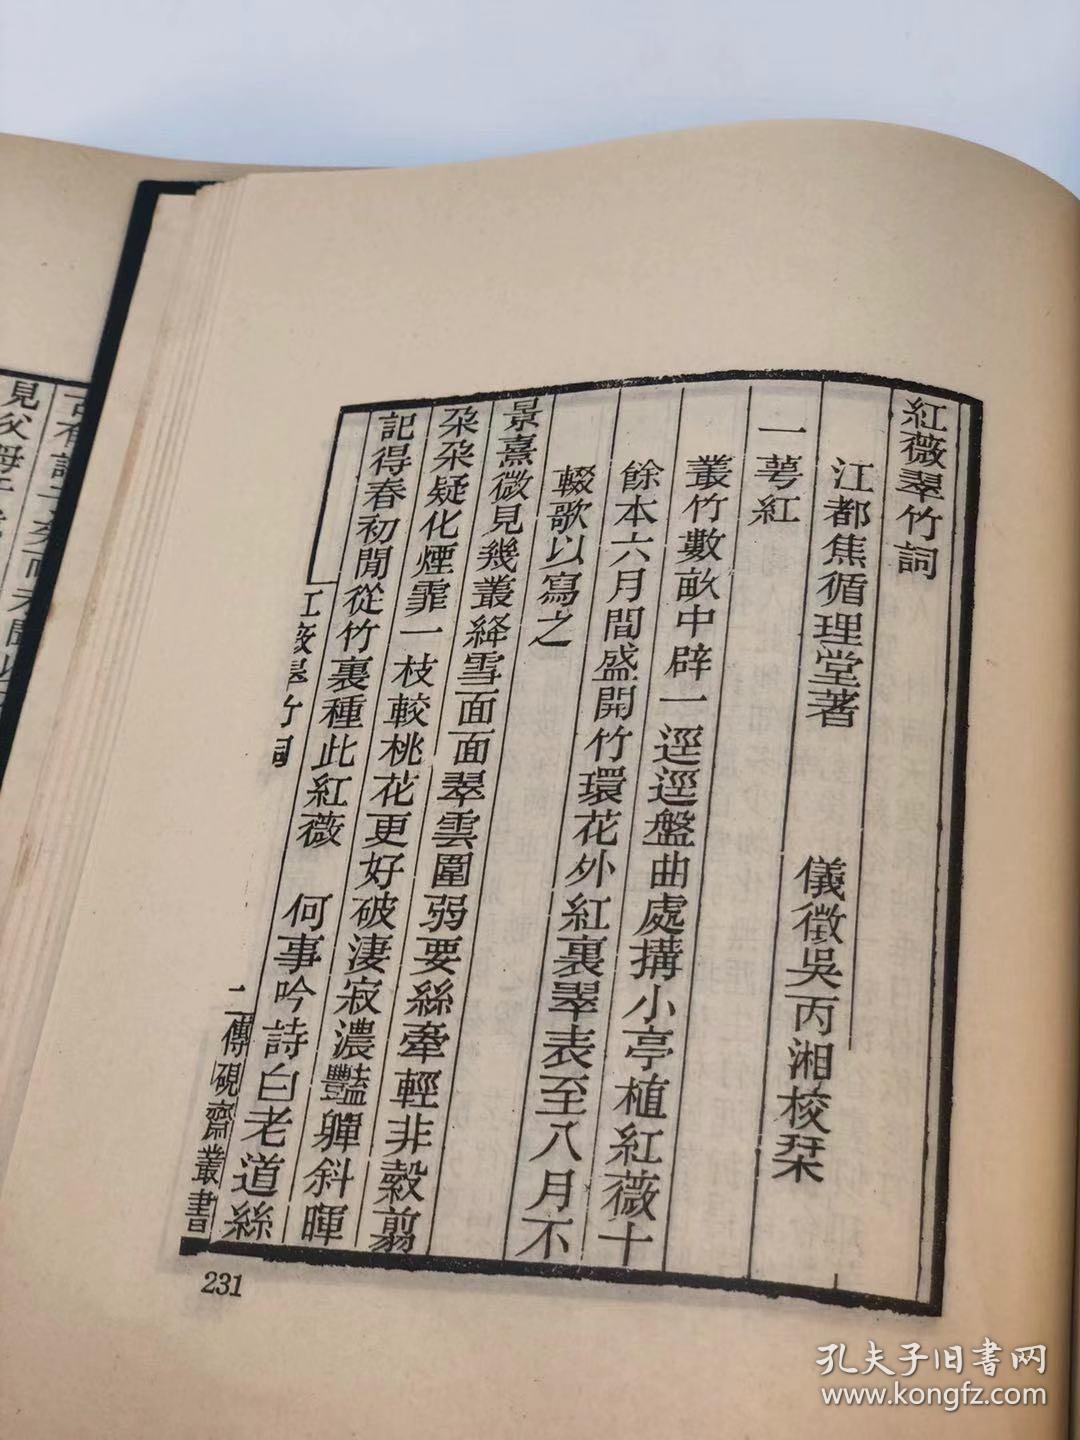 紅薇翠竹詞
江都焦循理堂著 儀徵吳丙湘校栞
一萼紅
叢竹數畝中辟一逕逕盤曲處搆小亭植紅薇十
餘本六月間盛開竹環花外紅裏翠表至八月不
輟歌以寫之
景熹微見幾叢絳雪面面翠雲圍弱要絲牽輕非縠翦
朶朶疑化煙霏一枝較桃花更好破淒寂濃豔嚲斜暉
記得春初閒從竹裏種此紅薇 何事吟詩白老道絲
紅薇翠竹詞
二傳硯齋叢書
231
見父母
孔夫子旧書网
www.kongfz.com